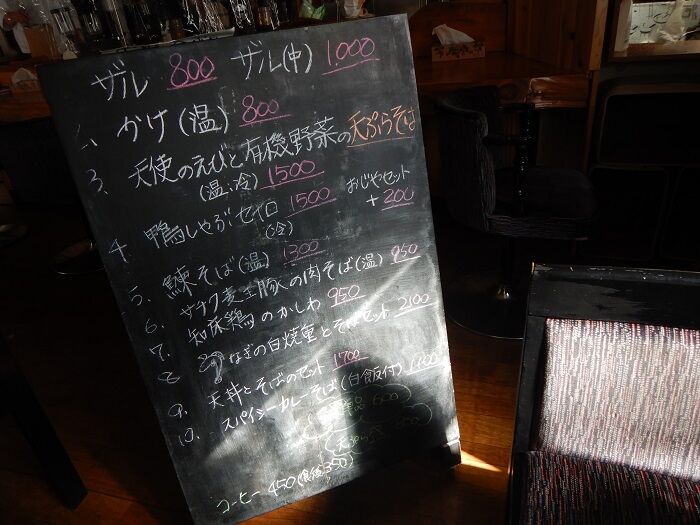 ザル 800 ザル(中) 1000
2、かけ(温) 800
3、天使のえびと有機野菜の天ぷらそば
(温、冷) 1500
4、鴨しゃぶセイロ 1500 おじやセット
(冷) +200
5、鰊そば(温) 1300
6、サチク麦王豚への肉そば(温) 950
7、知床鶏のかしわ 950
8 うなぎの白焼重とそばセット 2100
9、天丼とそばのセット 1700
10、スパイシーカレーそば(白飯付) 1100
600
コーヒー 450(食後350)